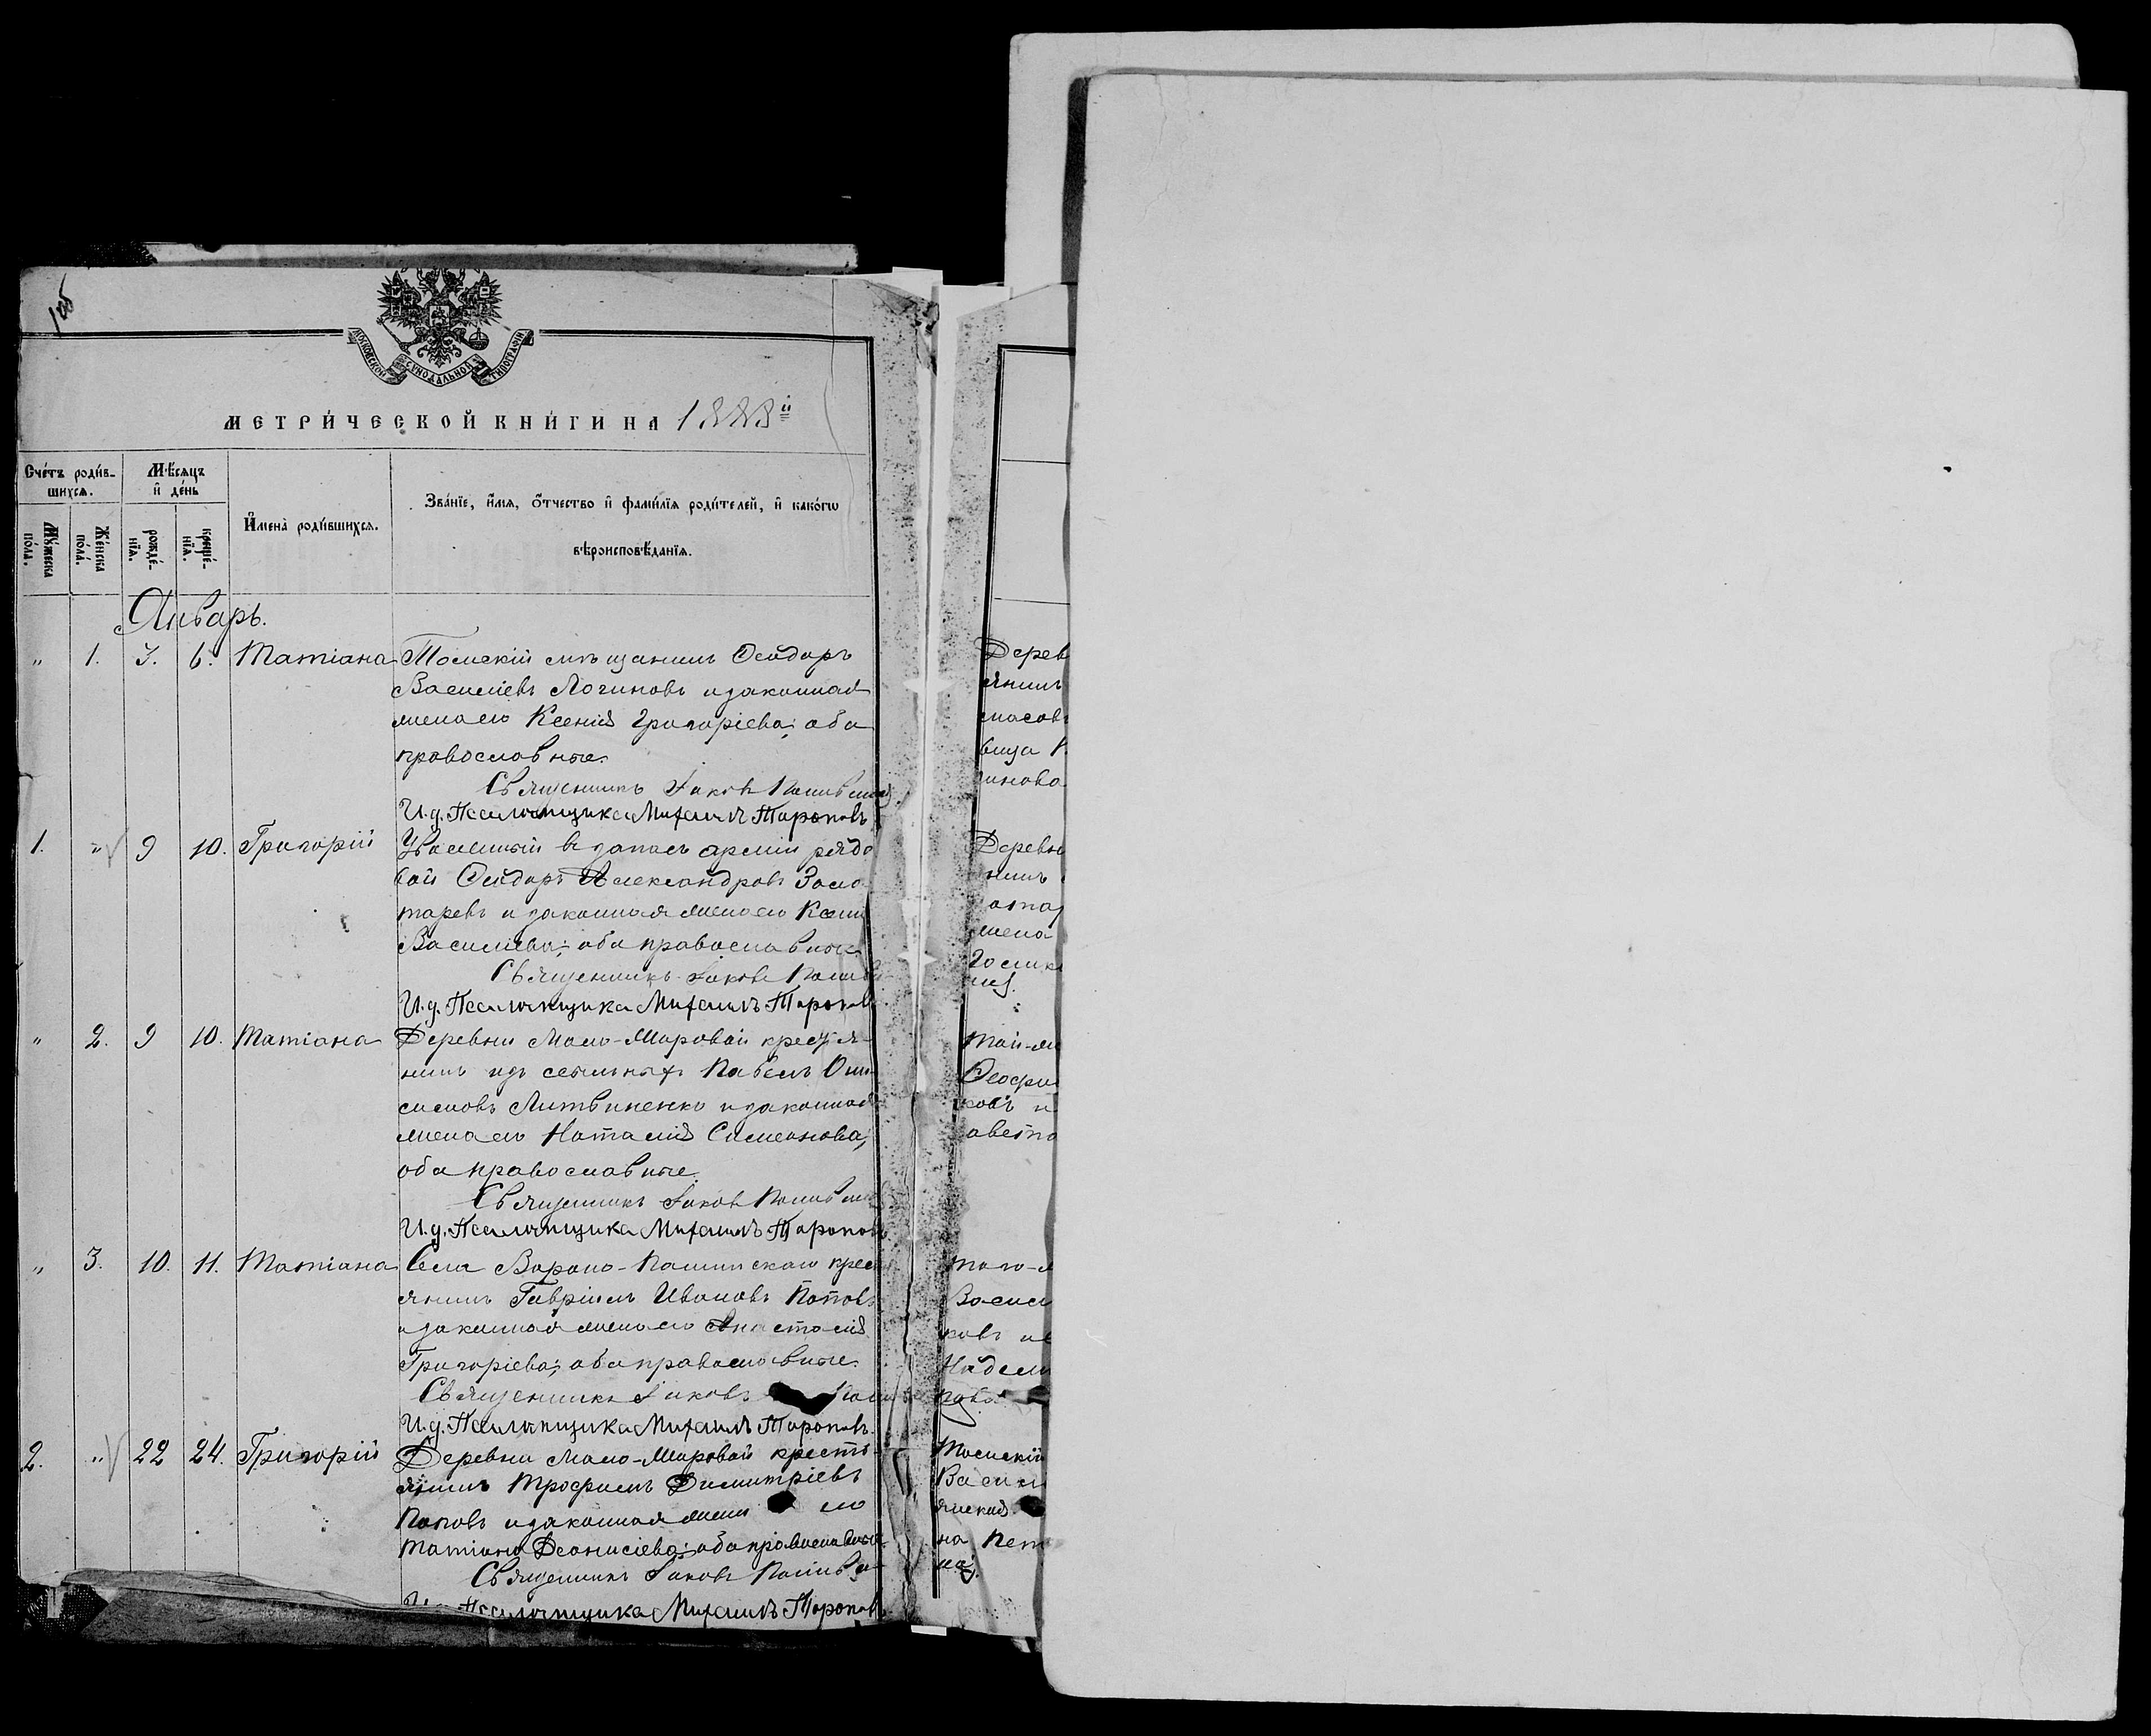 МОСКОВСКОЙ СѴНОДАЛЬНОЙ ТИПОГРАФІИ
МЕТРИ́ЧЕСКОЙ КНИ́ГИ НА 1888й
Сче́тъ роди́в-
шихсѧ.
Мꙋ́жеска
по́ла.
Же́нска
по́ла.
Мѣ́сѧцъ
и҆ де́нь
рожде́-
нїѧ.
креще́-
нїѧ.
И҆мена̀ роди́вшихсѧ.
Зва́нїе, и҆́мѧ, ѻ҆́тчество и҆ фами́лїѧ роди́телей, и҆ како́гѡ
вѣроисповѣ́данїѧ.
Январь.
„ 1. 3. 6. Татіана
Томскій мѣщанинъ Ѳеодоръ
Василіевъ Логиновъ и законная
жена его Ксенія Григоріева; оба
православные.
Священникъ Іаковъ
И.д. Псаломщика Михаилъ Тороповъ
1. „ 9 10. Григорій
Уволенный въ запасъ арміи рядо
вой Ѳеодоръ Александровъ Золо
таревъ и законная жена его Ксені
Василіева; оба православные
Священникъ Іаковъ
И.д. Псаломщика Михаилъ Торопов
„ 2. 9 10. Татіана
Деревни Мало-Жировой крестья-
нинъ изъ ссыльныхъ Павелъ Они
симовъ Литвиненко и законная
жена его Наталія Симеонова;
оба православные.
Священникъ Іаковъ
И.д. Псаломщика Михаилъ Торопов
„ 3. 10. 11. Татіана
Села Вороно-Пашинскаго крес
янинъ Гавріилъ Ивановъ Поповъ
и законная жена его Анастасія
Григоріева; оба православные.
Священникъ Іаковъ
И.д. Псаломщика Михаилъ Торопов.
2. „ 22 24. Григорій
Деревни Мало-Жировой кресть-
янинъ Трофимъ Димитріевъ
Поповъ и законная жена его
Татіана Деонисіева; оба православные
Священникъ Іаковъ
Псаломщика Михаилъ Торопов
Дерев
янинъ
вица
инова
Деревн
нинъ
жена
Той-же
Ѳеофи
ковъ и
авета
Того-ж
Васил
ковъ и
Надеж
пова
Томскій
Васил
на Пет